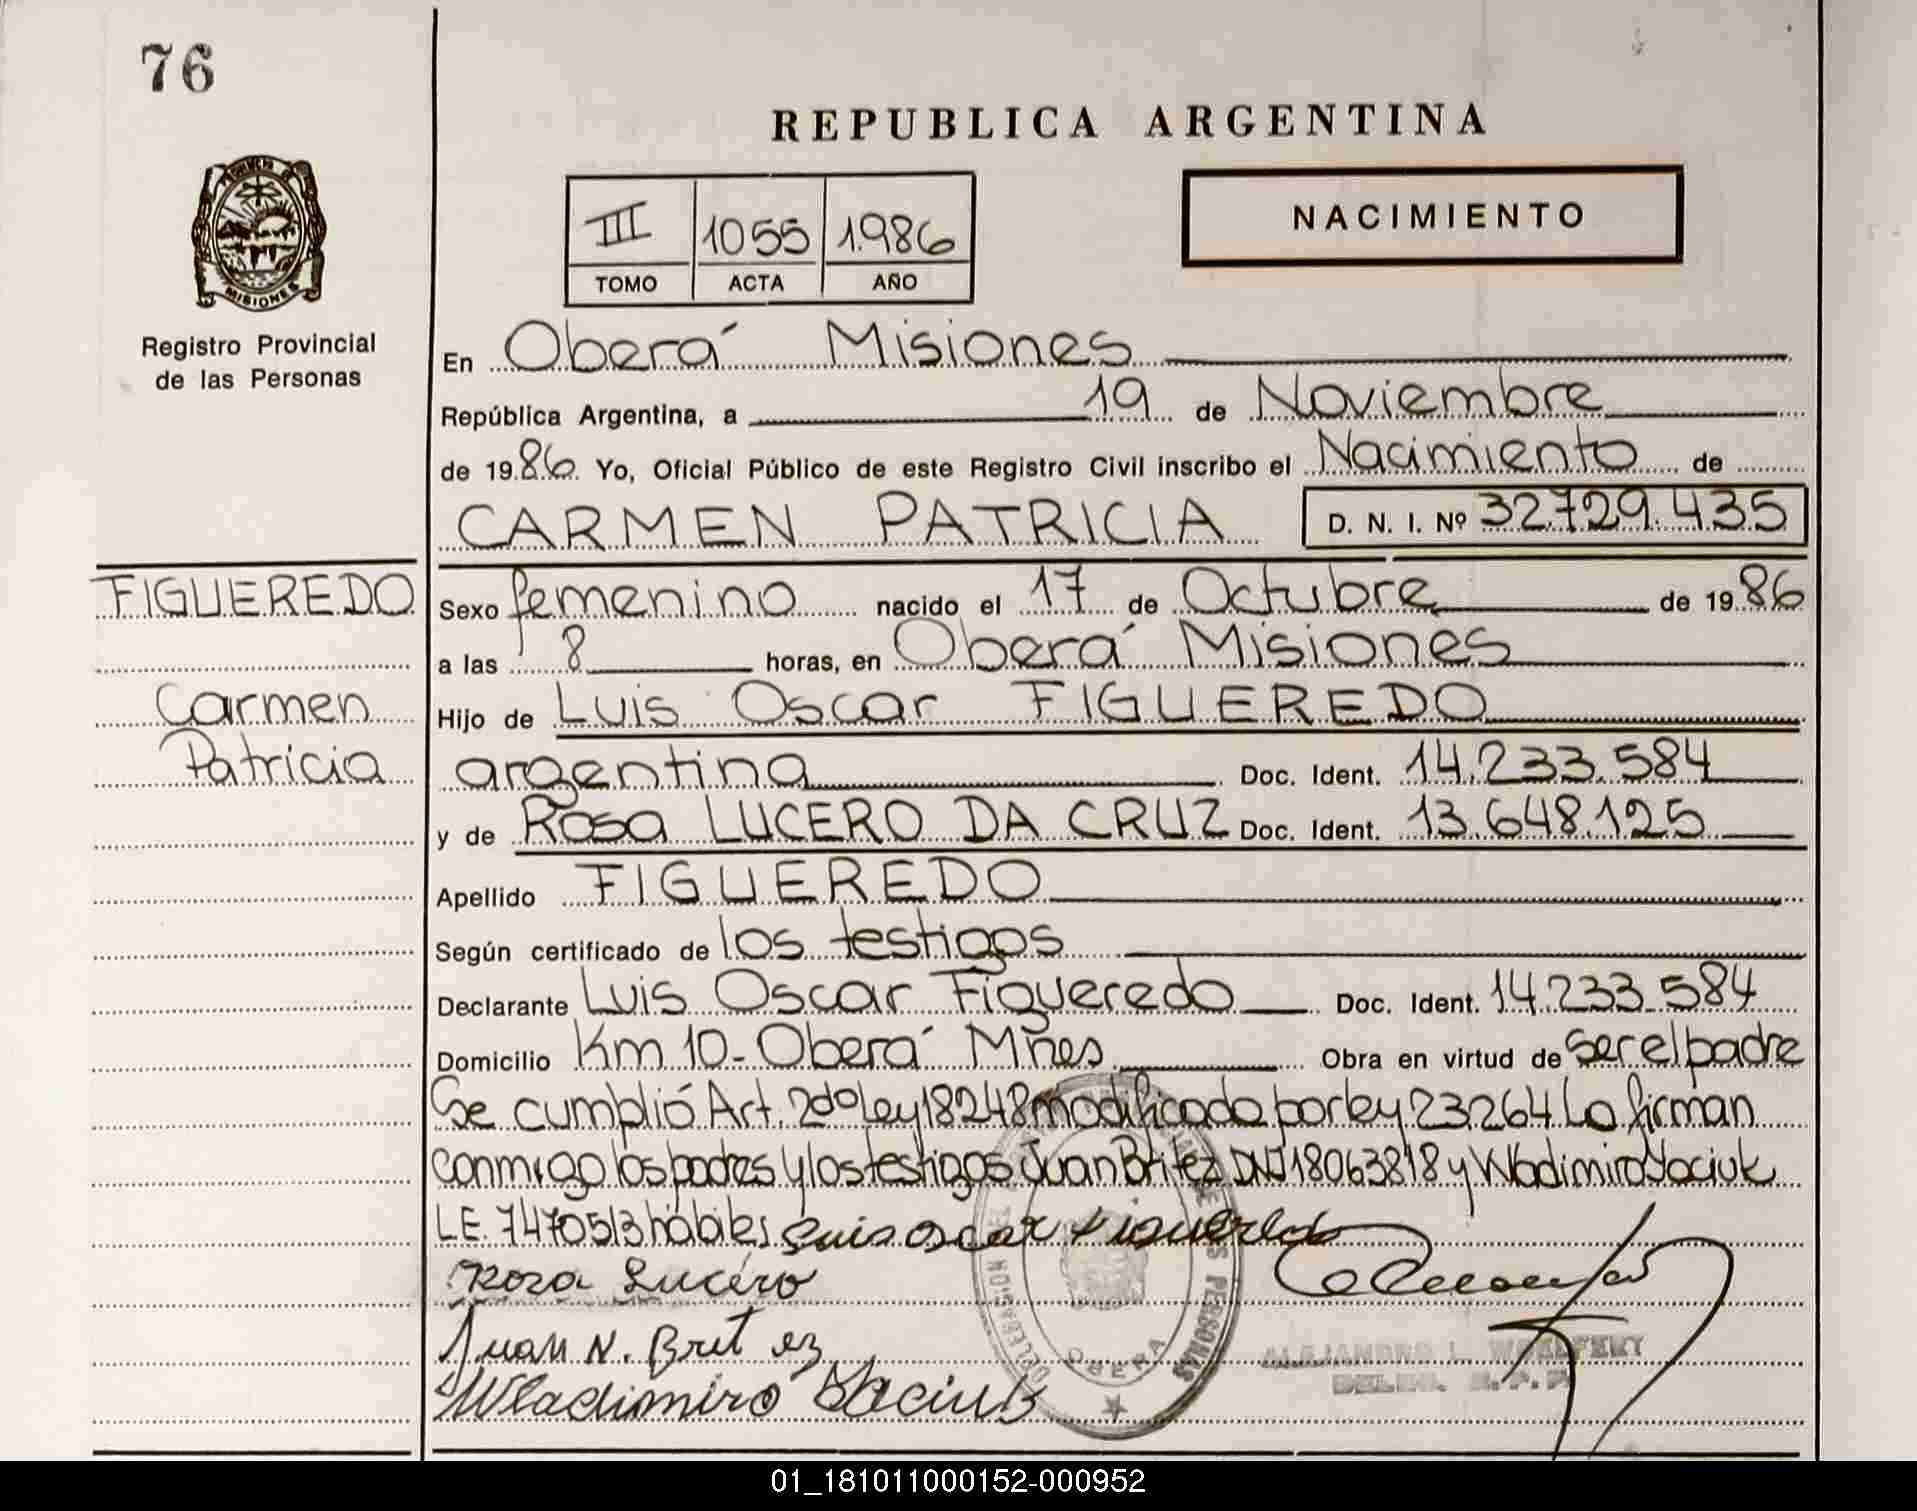 76
REPUBLICA ARGENTINA
III 1055 1.986
TOMO ACTA AÑO
NACIMIENTO
MISIONES
Registro Provincial
de las Personas
En Oberá Misiones
República Argentina, a 19 de Noviembre
de 1986. Yo, Oficial Público de este Registro Civil inscribo el Nacimiento de
CARMEN PATRICIA D. N. I. Nº 32.729.435
FIGUEREDO
Carmen
Patricia
Sexo femenino nacido el 17 de Octubre de 1986
a las 8 horas, en Oberá Misiones
Hijo de Luis Oscar FIGUEREDO
argentina Doc. Ident. 14.233.584
y de Rosa LUCERO DA CRUZ Doc. Ident. 13.648.125
Apellido FIGUEREDO
Según certificado de los testigos
Declarante Luis Oscar Figueredo Doc. Ident. 14.233.584
Domicilio Km 10-Oberá Mnes Obra en virtud de ser el padre
Se cumplió Art. 2do Ley 18248 modificado por ley 23.264 Lo firman
conmigo los padres y los testigos Juan Britez DNI 18063818 y Wladimiro Yaciuk
LE. 7470513 hábiles Luis Oscar Figueredo
Rosa Lucero
Juan N. Britez
Wladimiro Yaciuk
DELEGACION DE LAS PERSONAS
OBERA
ALEJANDRO L.
01_181011000152-000952